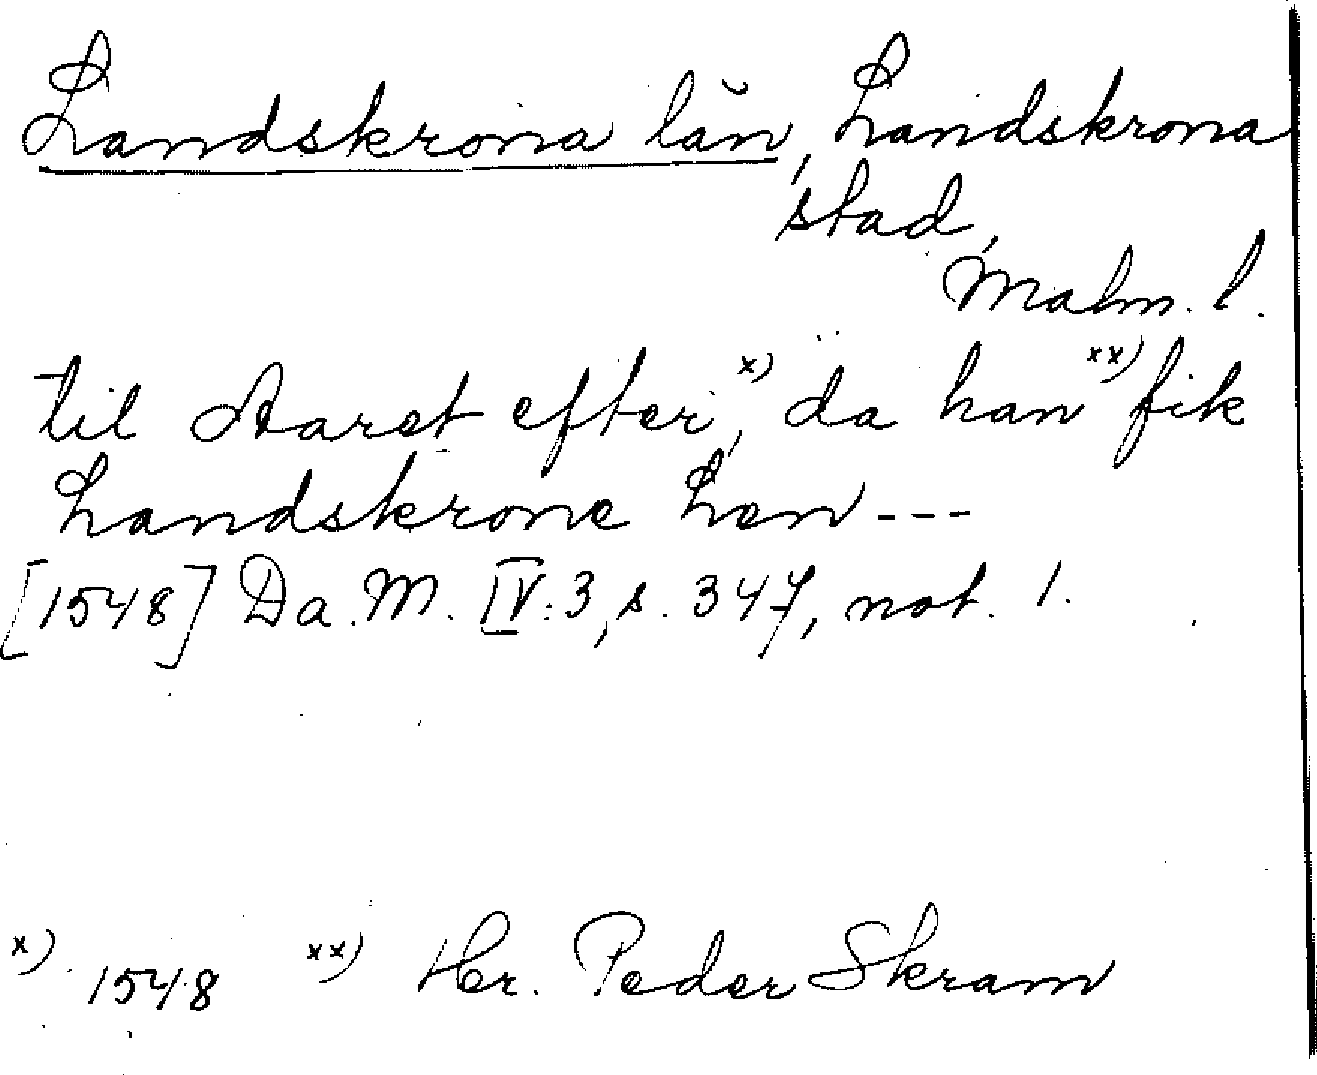 Landskrona län, Landskrona
stad,
Malm. l.
til Aaret efter,x) da han xx) fik
Landskrone Len ---
[1548] Da. M. IV:3, s. 347, not. 1.
x) 1548 xx) Her. Peder Skram